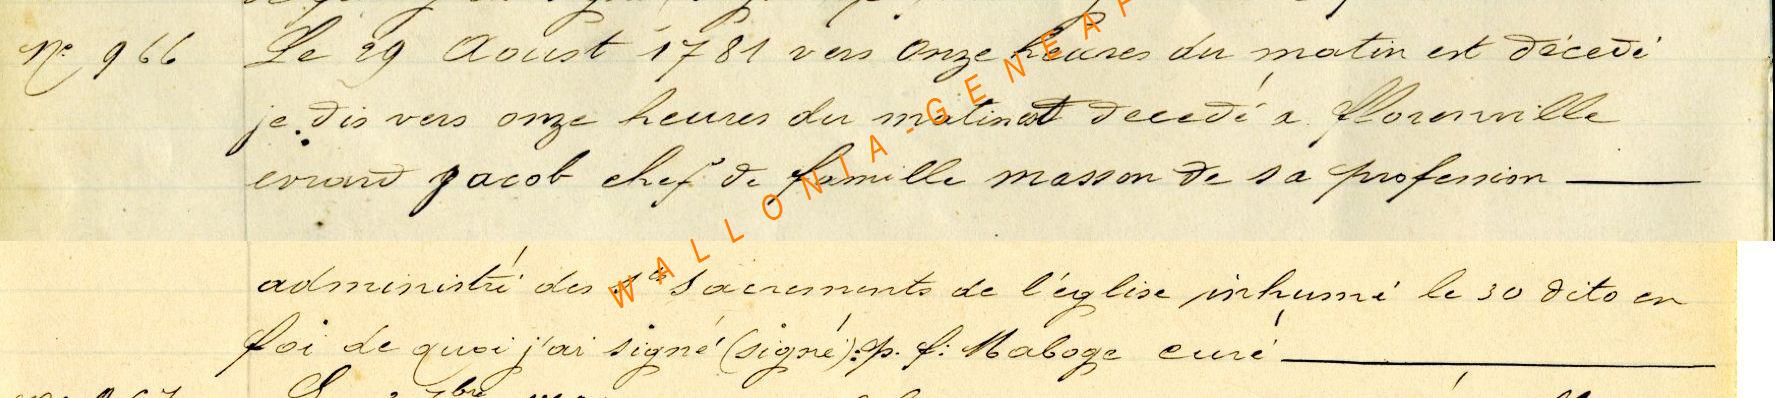 N° 966 Le 29 Aoust 1781 vers onze heures du matin est décedé
je dis vers onze heures du matin est decedé a florenville
evrard jacob chef de famille masson de sa profession
administré des sts Sacrements de l'église inhumé le 30 dito en
foi de quoi j'ai signé (signé): p. f: Maboge curé
WALLONIA-GENEAP